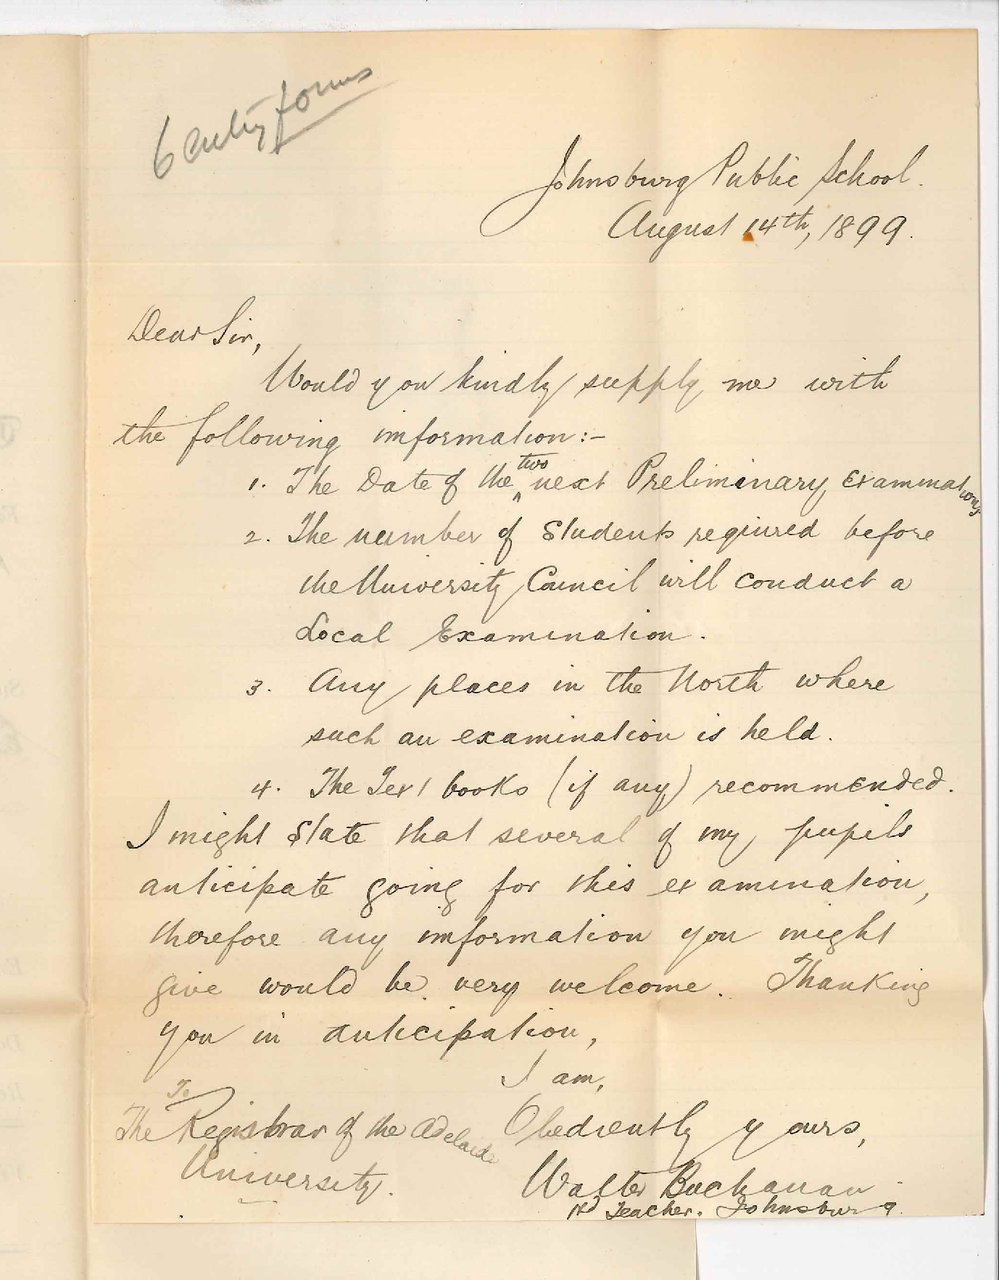 6 entry forms
Johnsburg Public School.
August 14th, 1899.
Dear Sir,
Would you kindly supply me with
the following information:-
1. The Date of the two next Preliminary Examinations
2. The number of Students required before
the University Council will conduct a
Local Examination.
3. Any places in the North where
such an examination is held.
4. The Text books (if any) recommended.
I might State that several of my pupils
anticipate going for this examination,
therefore any information you might
give would be very welcome. Thanking
you in anticipation,
I am,
Obediently yours,
Walter Buchanan
Hd Teacher. Johnsburg
To
The Registrar of the Adelaide
University.